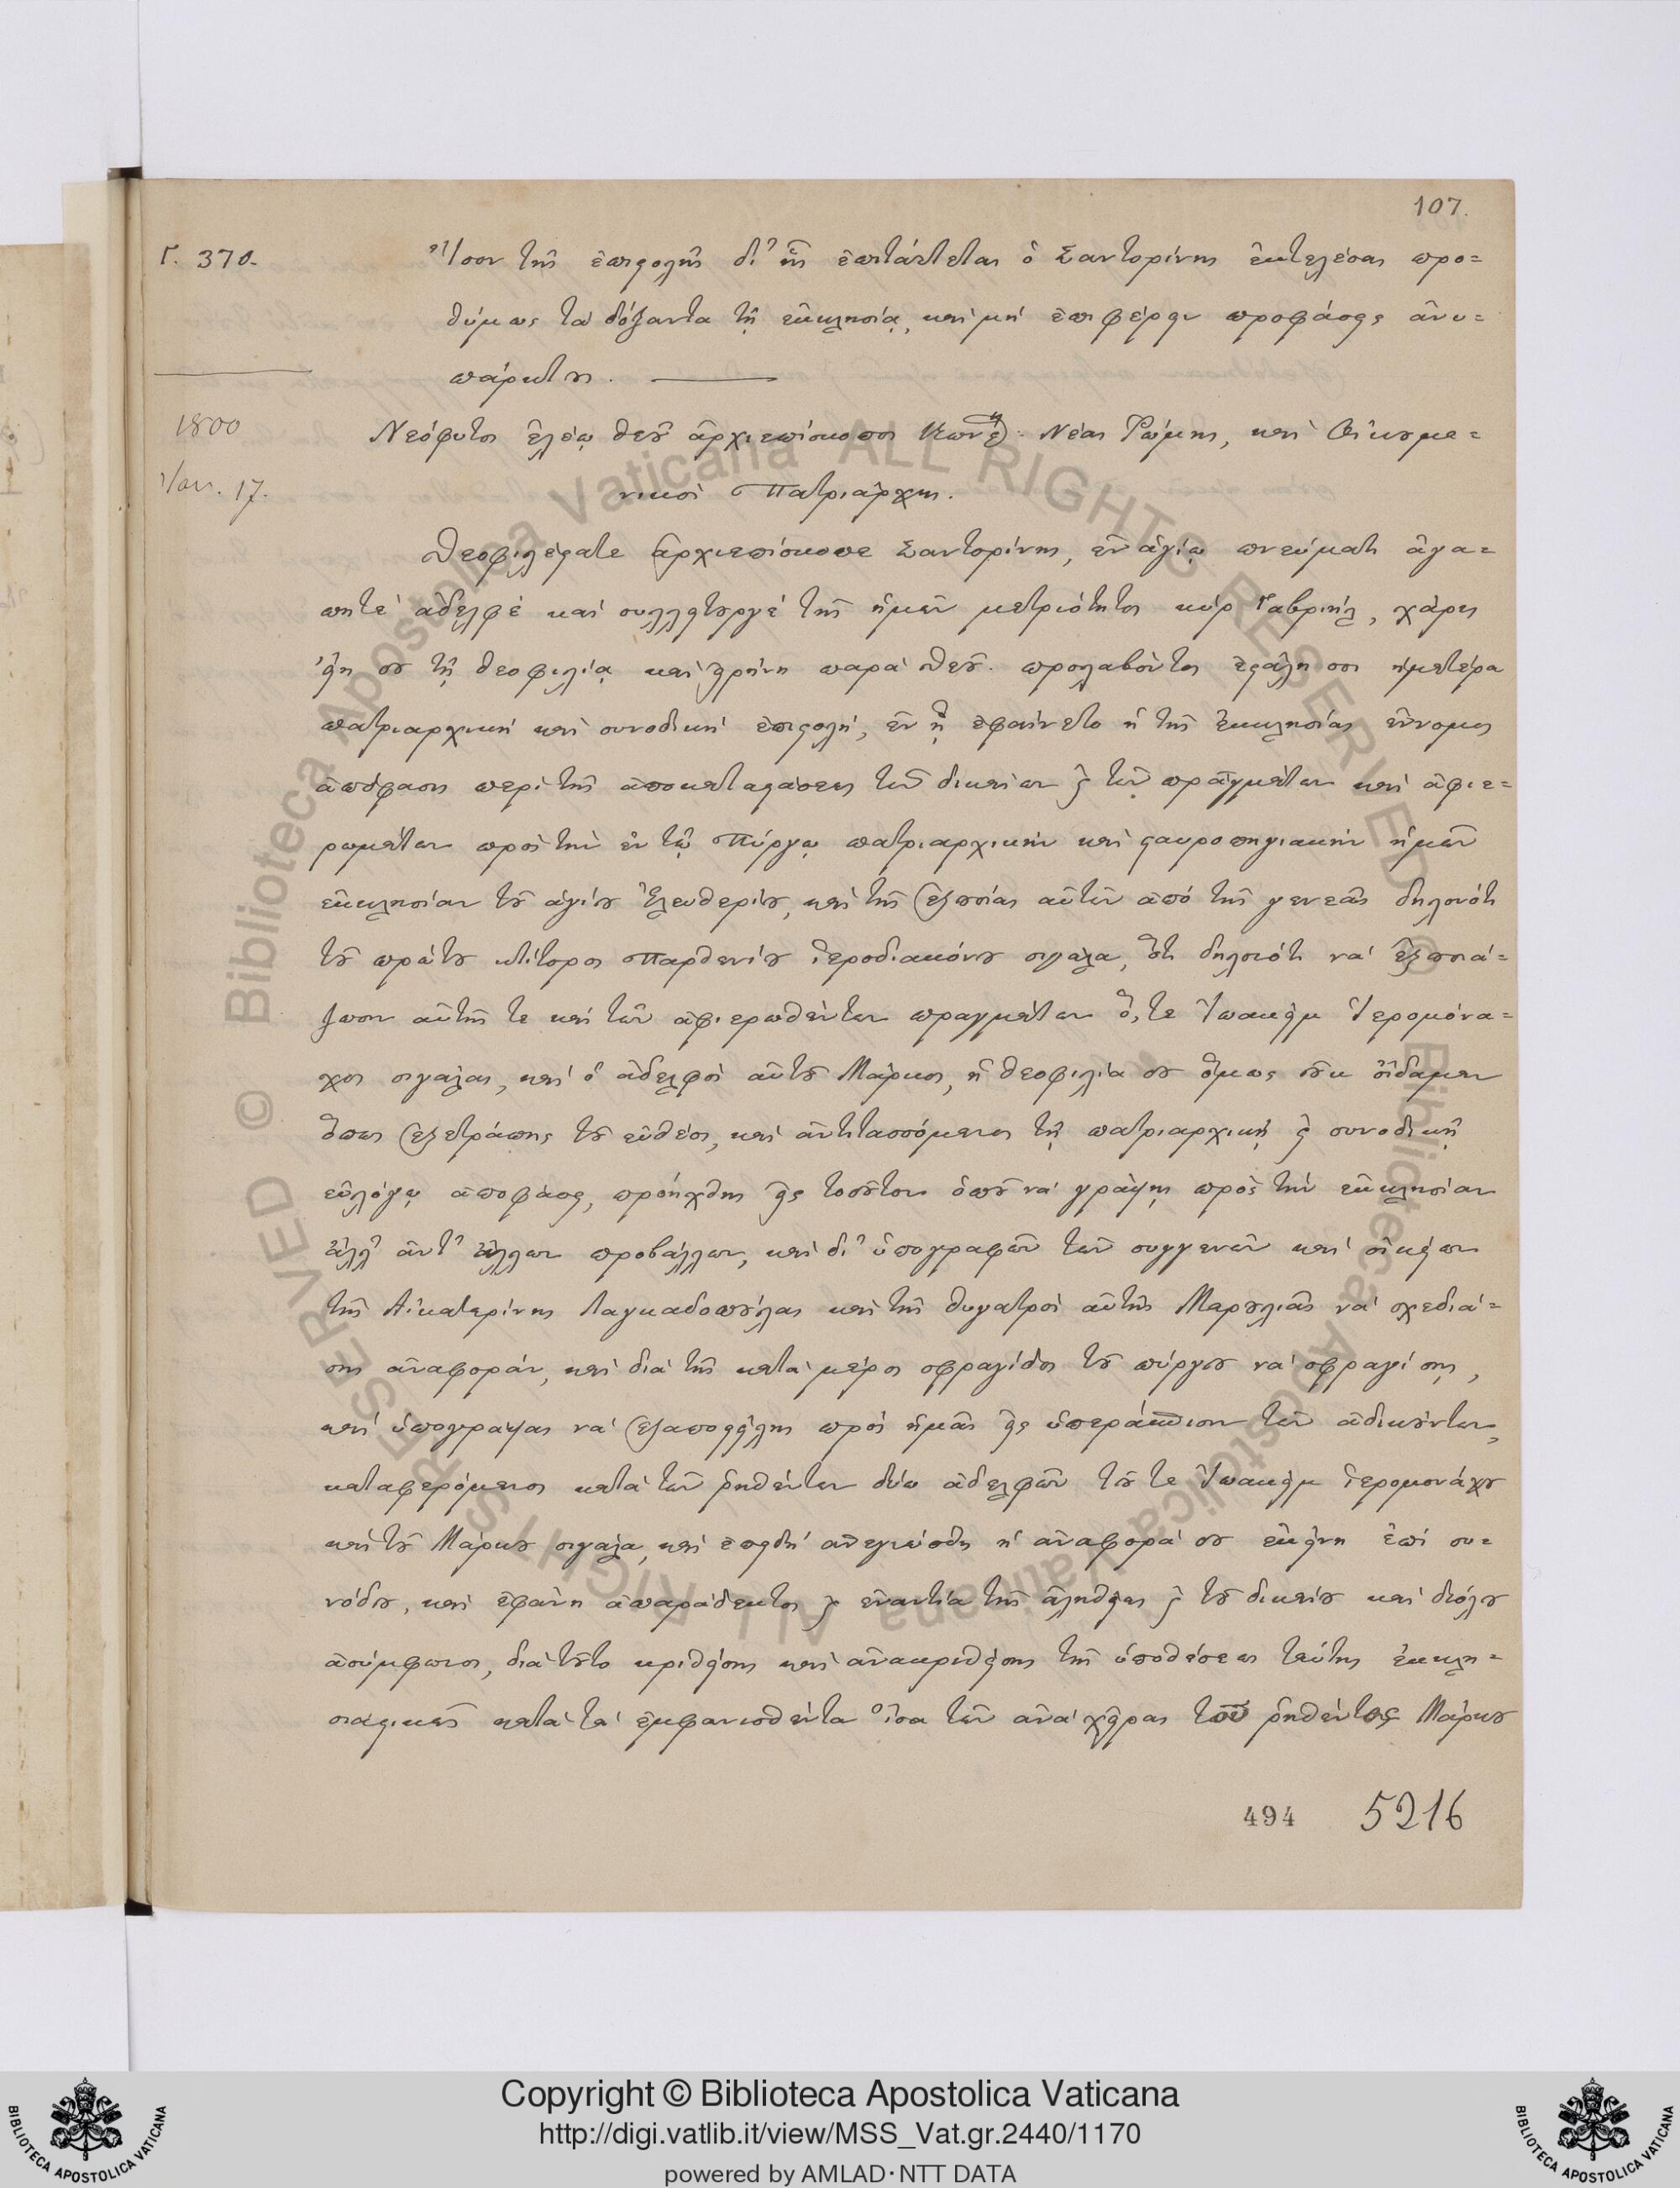 107.
Γ. 370.
Ἴσον τῆς ἐπιστολῆς δι' ἧς ἐπιτάττεται ὁ Σαντορίνης ἐκτελέσαι προ=
θύμως τὰ δόξαντα τῇ ἐκκλησίᾳ, καὶ μὴ ἐπιφέρειν προφάσεις ἀνυ=
πάρκτους.
1800
Ἰαν. 17.
Νεόφυτος ἐλέῳ θεοῦ ἀρχιεπίσκοπος Κων Νέας Ῥώμης, καὶ Οἰκουμε=
νικὸς Πατριάρχης.
Θεοφιλέστατε ἀρχιεπίσκοπε Σαντορίνης, ἐν ἁγίῳ πνεύματι ἀγα=
πητὲ ἀδελφὲ καὶ συλλειτουργὲ τῆς ἡμῶν μετριότητος κὺρ Γαβριήλ, χάρις
εἴη σου τῇ θεοφιλίᾳ καὶ εἰρήνη παρὰ θεοῦ. προλαβόντως ἐστάλη σοι ἡμετέρα
πατριαρχικὴ καὶ συνοδικὴ ἐπιστολή, ἐν ᾗ ἐφαίνετο ἡ τῆς ἐκκλησίας ἔννομος
ἀπόφασις περὶ τῆς ἀποκαταστάσεως τῶν δικαίων ϗ τῶν πραγμάτων καὶ ἀφιε=
ρωμάτων πρὸς τὴν ἐν τῷ Πύργῳ πατριαρχικὴν καὶ σταυροπηγιακὴν ἡμῶν
ἐκκλησίαν τοῦ ἁγίου Ἐλευθερίου, καὶ τῆς ἐξουσίας αὐτῶν ἀπὸ τῆς γενεᾶς δηλονότι
τοῦ πρώτου κτίτορος Παρθενίου ἱεροδιακόνου σιγάλα, ὅτι δηλονότι νὰ ἐξουσιά=
ζωσιν αὐτῆς τε καὶ τῶν ἀφιερωθέντων πραγμάτων ὅ,τε Ἰωακεὶμ Ἱερομόνα=
χος σιγάλας, καὶ ὁ ἀδελφὸς αὐτοῦ Μάρκος, ἡ θεοφιλία σου ὅμως οὐκ οἴδαμεν
ὅπως ἐξετράπης τοῦ εὐθέος, καὶ ἀντιτασσόμενος τῇ πατριαρχικῇ ϗ συνοδικῇ
εὐλόγῳ ἀποφάσει, προήχθης εἰς τοσοῦτον ὁποῦ νὰ γράψῃς πρὸς τὴν ἐκκλησίαν
ἀλλ' ἀντ' ἄλλων προβάλλων, καὶ δι' ὑπογραφῶν τῶν συγγενῶν καὶ οἰκείων
τῆς Αἰκατερίνης Λαγκαδοπούλας καὶ τῆς θυγατρὸς αὐτῆς Μαρουλιᾶς νὰ σχεδιά=
σῃς ἀναφοράν, καὶ διὰ τῆς κατὰ μέρος σφραγίδος τοῦ πύργου νὰ σφραγίσῃς,
καὶ ὑπογράψας νὰ ἐξαποστείλῃς πρὸς ἡμᾶς εἰς ὑπεράσπισιν τῶν ἀδικούντων,
καταφερόμενος κατὰ τῶν ῥηθέντων δύω ἀδελφῶν τοῦ τε Ἰωακεὶμ ἱερομονάχου
καὶ τοῦ Μάρκου σιγάλα, καὶ ἐπειδὴ ἀνεγνώσθη ἡ ἀναφορά σου ἐκείνη ἐπὶ συ=
νόδου, καὶ ἐφάνη ἀπαράδεκτος ϗ ἐναντία τῆς ἀληθείας ϗ τοῦ δικαίου καὶ διόλου
ἀσύμφωνος, διὰ τοῦτο κριθείσης καὶ ἀνακριθείσης τῆς ὑποθέσεως ταύτης ἐκκλη=
σιαστικῶς κατὰ τὰ ἐμφανισθέντα ἴσα τῶν ἀνὰ χεῖρας τοῦ ῥηθέντος Μάρκου
494 5216
Copyright © Biblioteca Apostolica Vaticana
http://digi.vatlib.it/view/MSS_Vat.gr.2440/1170
powered by AMLAD·NTT DATA